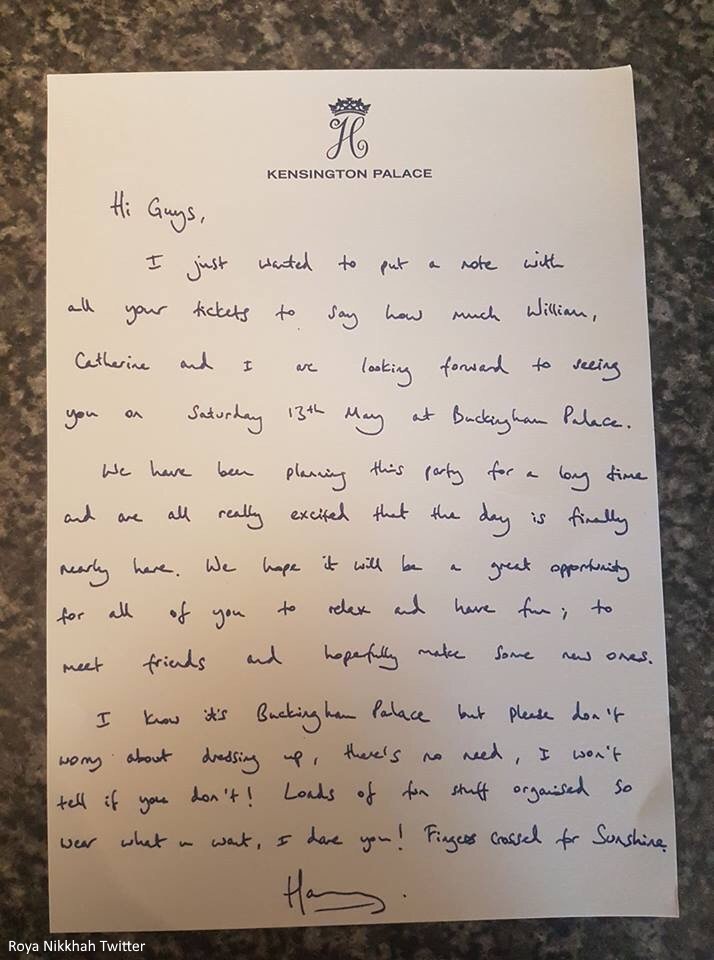 H
KENSINGTON PALACE
Hi Guys,
I just wanted to put a note with
all your tickets to say how much William,
Catherine and I are looking forward to seeing
you on Saturday 13th May at Buckingham Palace.
We have been planning this party for a long time
and are all really excited that the day is finally
nearly here. We hope it will be a great opportunity
for all of you to relax and have fun; to
meet friends and hopefully make some new ones.
I know it's Buckingham Palace but please don't
worry about dressing up, there's no need, I won't
tell if you don't! Loads of fun stuff organised so
wear what u want, I dare you! Fingers crossed for Sunshine.
Harry.
Roya Nikkhah Twitter